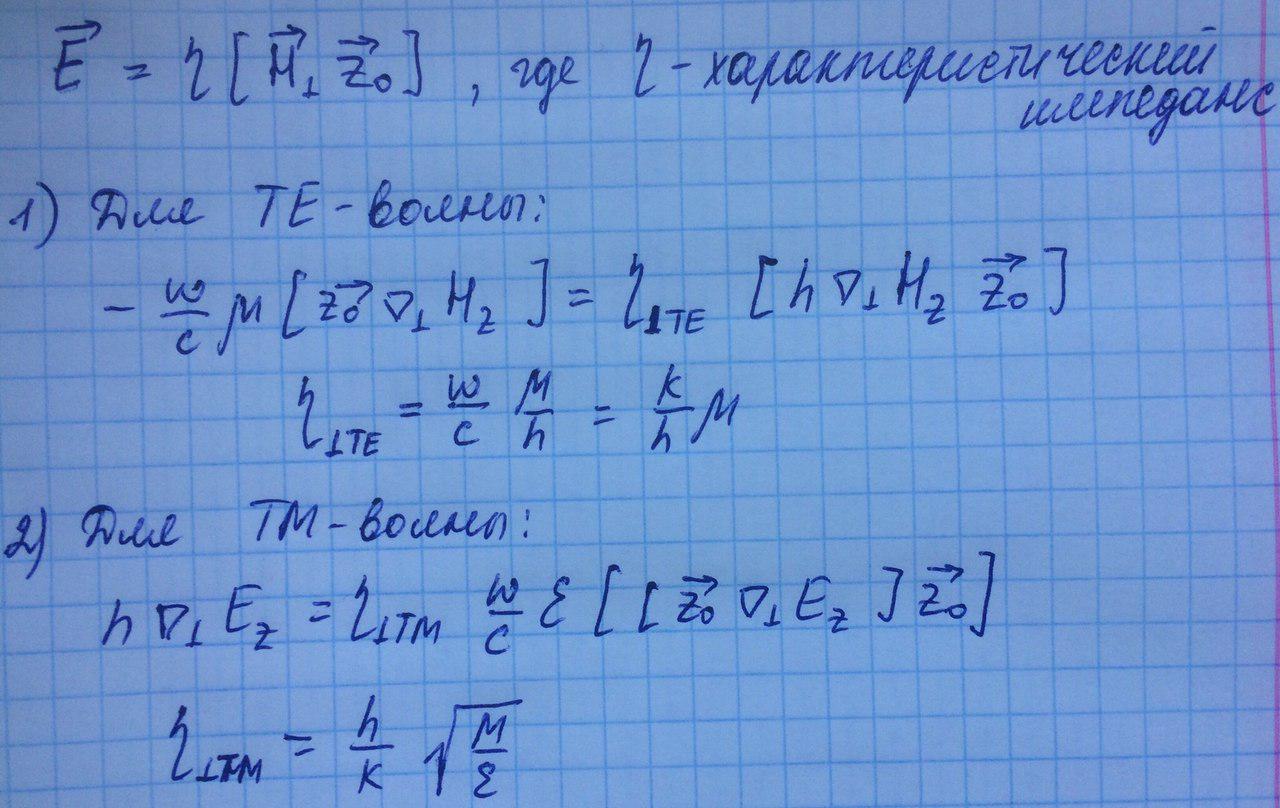 E⃗ = η [H⃗⊥ z⃗₀], где η - характеристический
импеданс
1) Для TE - волны:
- ω/c μ [z⃗₀ ∇⊥ H_z] = η⊥TE [h ∇⊥ H_z z⃗₀]
η⊥TE = ω/c μ/h = k/h μ
2) Для TM - волны:
h ∇⊥ E_z = η⊥TM ω/c ε [[z⃗₀ ∇⊥ E_z] z⃗₀]
η⊥TM = h/k √(μ/ε)